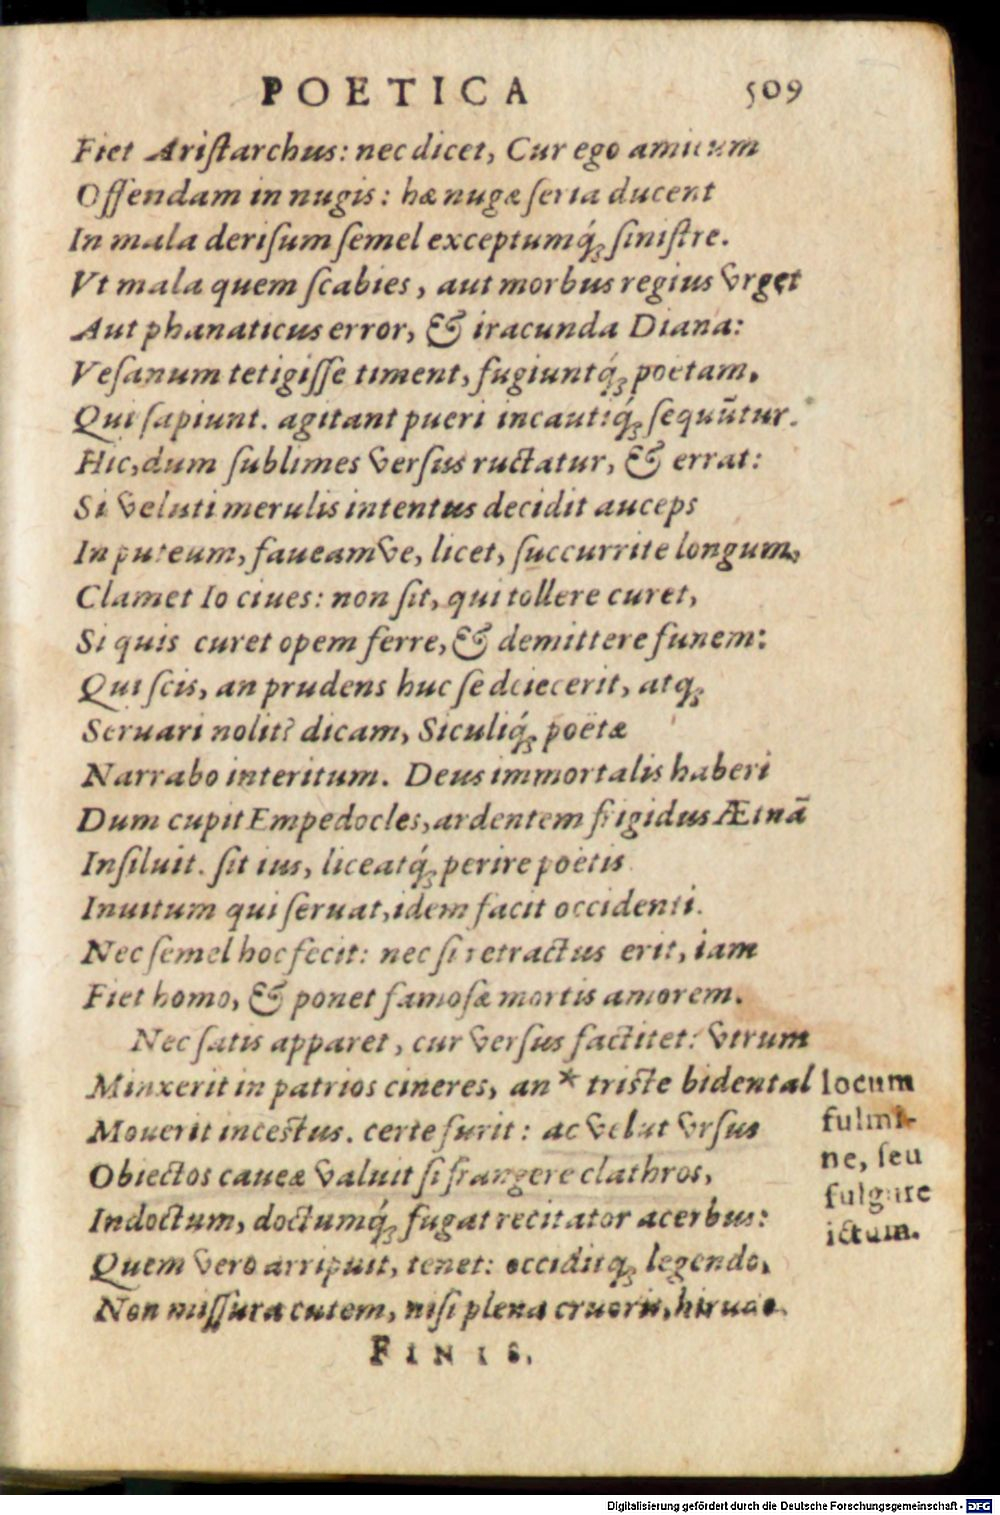 POETICA 509
Fiet Aristarchus: nec dicet, Cur ego amicum
Offendam in nugis: hæ nugæ seria ducent
In mala derisum semel exceptumq́; sinistre.
Vt mala quem scabies, aut morbus regius vrget
Aut phanaticus error, & iracunda Diana:
Vesanum tetigisse timent, fugiuntq́; poëtam,
Qui sapiunt. agitant pueri incautiq́; sequūtur.
Hic, dum sublimes versus ructatur, & errat:
Si veluti merulis intentus decidit auceps
In puteum, foueamve, licet, succurrite longum,
Clamet Io ciues: non sit, qui tollere curet,
Si quis curet opem ferre, & demittere funem:
Qui scis, an prudens huc se deiecerit, atq;
Seruari nolit? dicam, Siculiq́; poëtæ
Narrabo interitum. Deus immortalis haberi
Dum cupit Empedocles, ardentem frigidus Ætnā
Insiluit. sit ius, liceatq́; perire poëtis
Inuitum qui seruat, idem facit occidenti.
Nec semel hoc fecit: nec si retractus erit, iam
Fiet homo, & ponet famosæ mortis amorem.
Nec satis apparet, cur versus factitet: vtrum
Minxerit in patrios cineres, an * triste bidental
Mouerit incestus. certe furit: ac velut vrsus
Obiectos caueæ valuit si frangere clathros,
Indoctum, doctumq́; fugat recitator acerbus:
Quem vero arripuit, tenet: occiditq; legendo,
Non missura cutem, nisi plena cruoris, hirudo.
FINIS.
locum
fulmi-
ne, seu
fulgure
ictum.
Digitalisierung gefördert durch die Deutsche Forschungsgemeinschaft - DFG